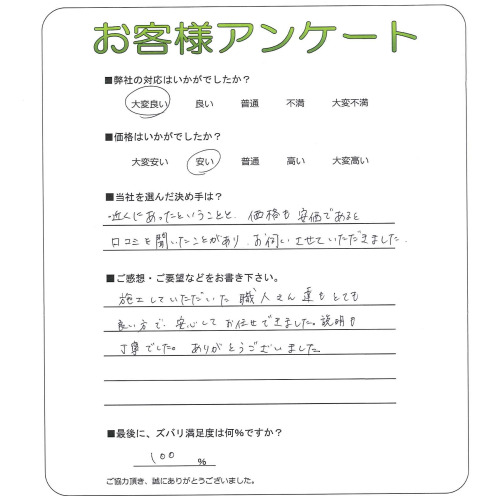 お客様アンケート
■弊社の対応はいかがでしたか？
大変良い 良い 普通 不満 大変不満
■価格はいかがでしたか？
大変安い 安い 普通 高い 大変高い
■当社を選んだ決め手は？
・近くにあったということと、価格も安価であると
口コミを聞いたことがあり、お伺いさせていただきました。
■ご感想・ご要望などをお書き下さい。
施工していただいた職人さん達もとても
良い方で、安心してお任せできました。説明も
丁寧でした。ありがとうございました。
■最後に、ズバリ満足度は何%ですか？
100 %
ご協力頂き、誠にありがとうございました。